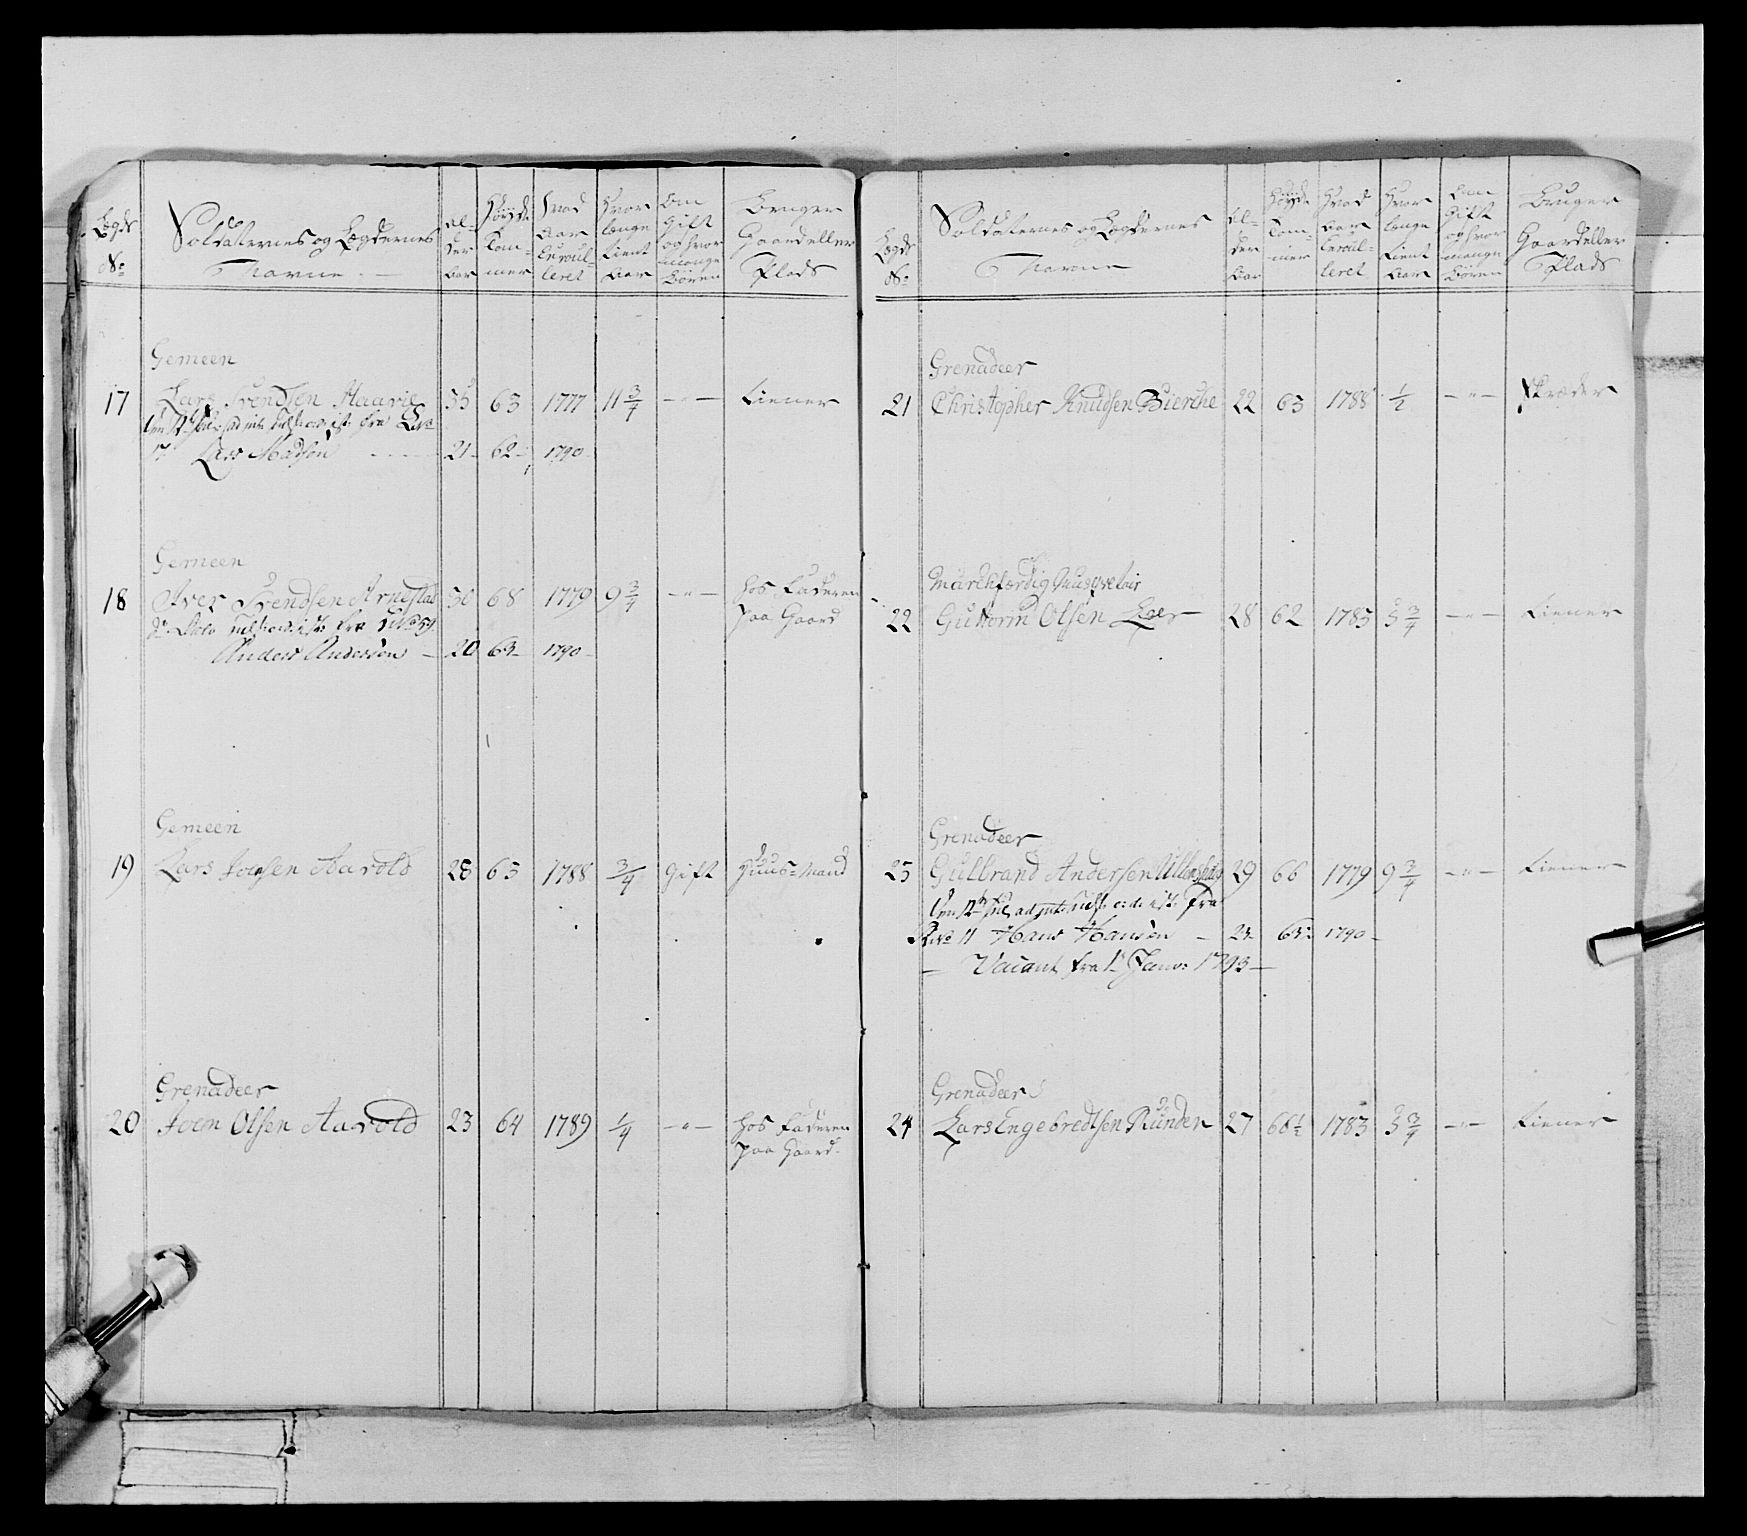 Lægds No
Soldaternes og Lægdernes Navne
Alder Aar
Høyde Tommer
Hvad Aar Enroulleret
Hvor længe Tient Aar
Om Gift og hvor mange Børen
Bruger Gaard eller Plads
Gemeen
17 Lars Svendsen Haarie 35 63 1777 11 3/4 - " - Tiener
fra
17 Lars Madsen 21 62 1790
Gemeen
18 Iver Svendsen Arnestad 30 68 1779 9 3/4 - " - hos Faderen
paa Gaard
fra No 59
Anders Andersen 20 63 1790
Gemeen
19 Lars Joensen Aarold 28 65 1788 3/4 Gift Huus=Mand
Grenadeer
20 Joen Olsen Aarold 23 64 1789 1/4 - " - hos Faderen
paa Gaard
Lægds No
Soldaternes og Lægdernes Navne
Alder Aar
Høyde Tommer
Hvad Aar Enroulleret
Hvor længe Tient Aar
Om Gift og hvor mange Børen
Bruger Gaard eller Plads
Grenadeer
21 Christopher Knudsen Bierche 22 63 1788 1/2 - " - Skræder
Marchfærdig Musqvetair
22 Guttorm Olsen Loe 28 62 1783 5 3/4 - " - Tiener
Grenadeer
23 Gulbrand Andersen 29 66 1779 9 3/4 - " - Tiener
fra
No 11 Hans Hansen 1790
Vacant fra 1 Janv: 1793
Grenadeer
24 Lars Engebredtsen Runden 27 66 1/2 1783 5 3/4 - " - Tiener